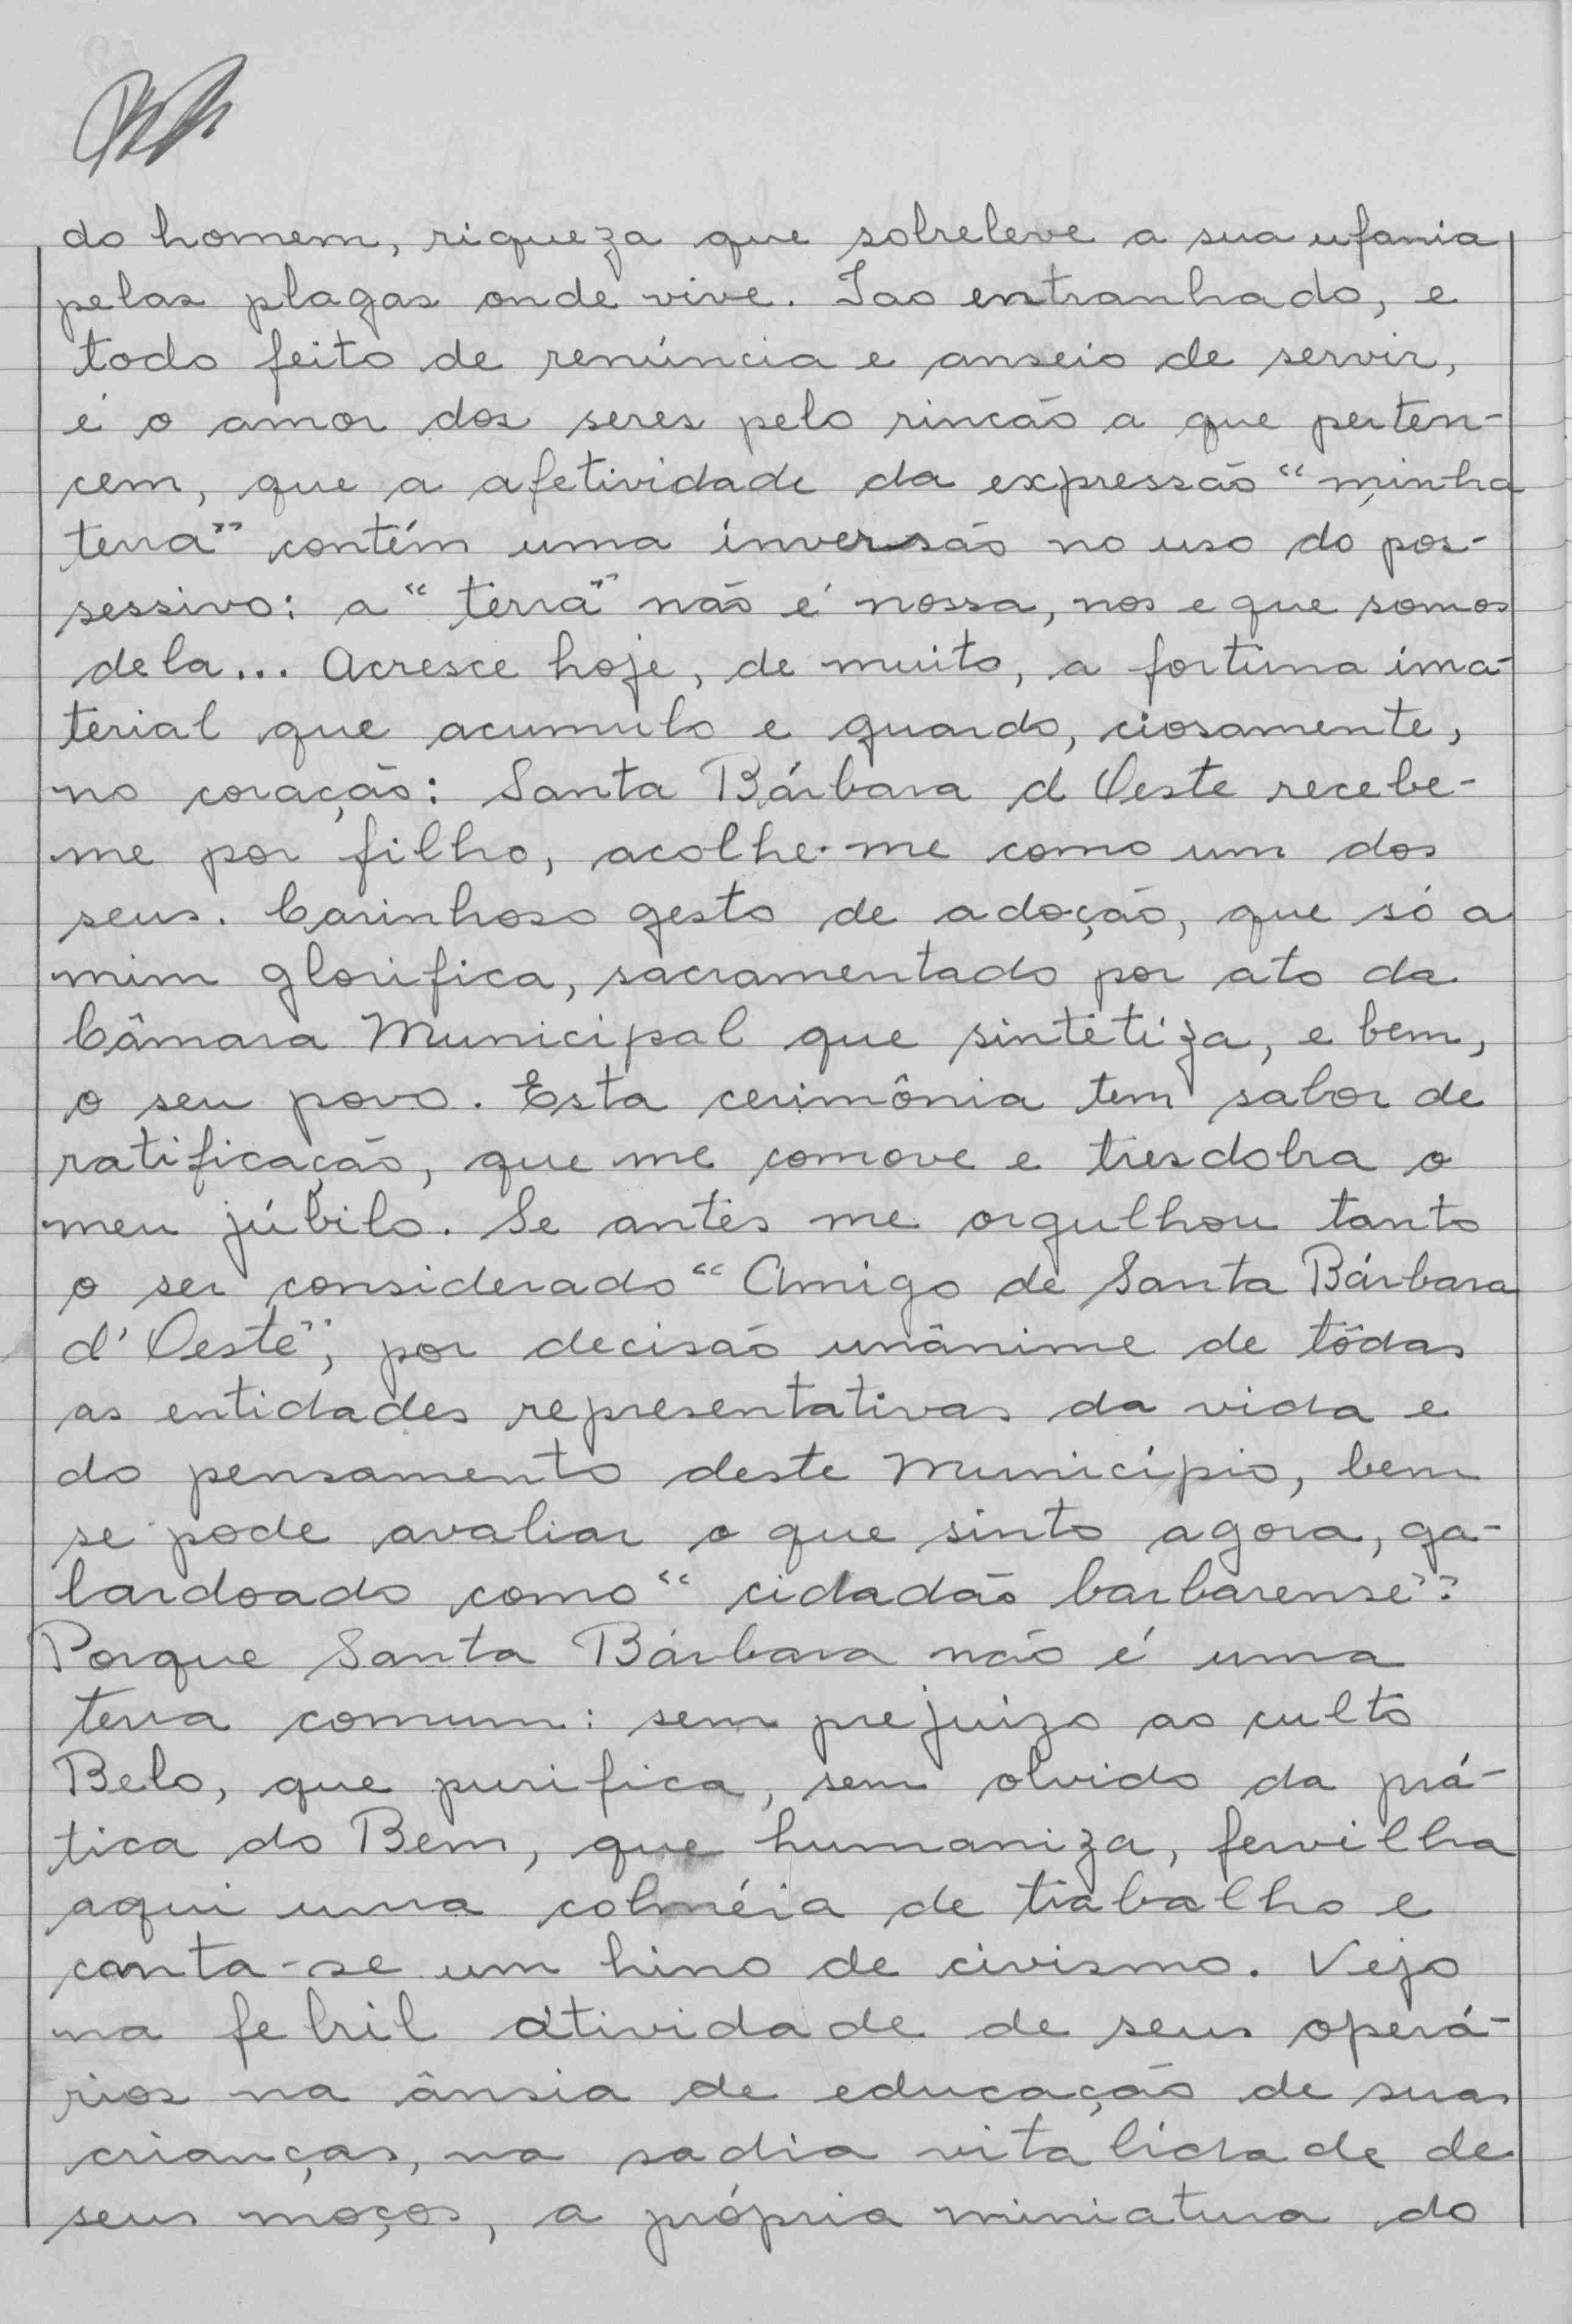 do homem, riqueza que sobreleve a sua ufania
pelas plagas onde vive. Tao entranhado, e
todo feito de renúncia e anseio de servir,
é o amor dos seres pelo rincão a que perten-
cem, que a afetividade da expressão "minha
terra" contém uma inversão no uso do pos-
sessivo: a "terra" não é nossa, nos e que somos
dela... Acresce hoje, de muito, a fortuna ima-
terial que acumulo e guardo, ciosamente,
no coração: Santa Bárbara d Oeste recebe-
me por filho, acolhe-me como um dos
seus. Carinhoso gesto de adoção, que só a
mim glorifica, sacramentado por ato da
Câmara Municipal que sintetiza, e bem,
o seu povo. Esta cerimônia tem sabor de
ratificação, que me comove e tresdobra o
meu júbilo. Se antes me orgulhou tanto
o ser considerado "Amigo de Santa Bárbara
d'Oeste", por decisão unânime de tôdas
as entidades representativas da vida e
do pensamento deste Município, bem
se pode avaliar o que sinto agora, ga-
lardoado como "cidadão barbarense".
Porque Santa Bárbara não é uma
terra comum: sem prejuizo ao culto
Belo, que purifica, sem olvido da prá-
tica do Bem, que humaniza, fervilha
aqui uma colméia de trabalho e
canta-se um hino de civismo. Vejo
na febril atividade de seus operá-
rios na ânsia de educação de suas
crianças, na sadia vitalidade de
seus moços, a própria miniatura do